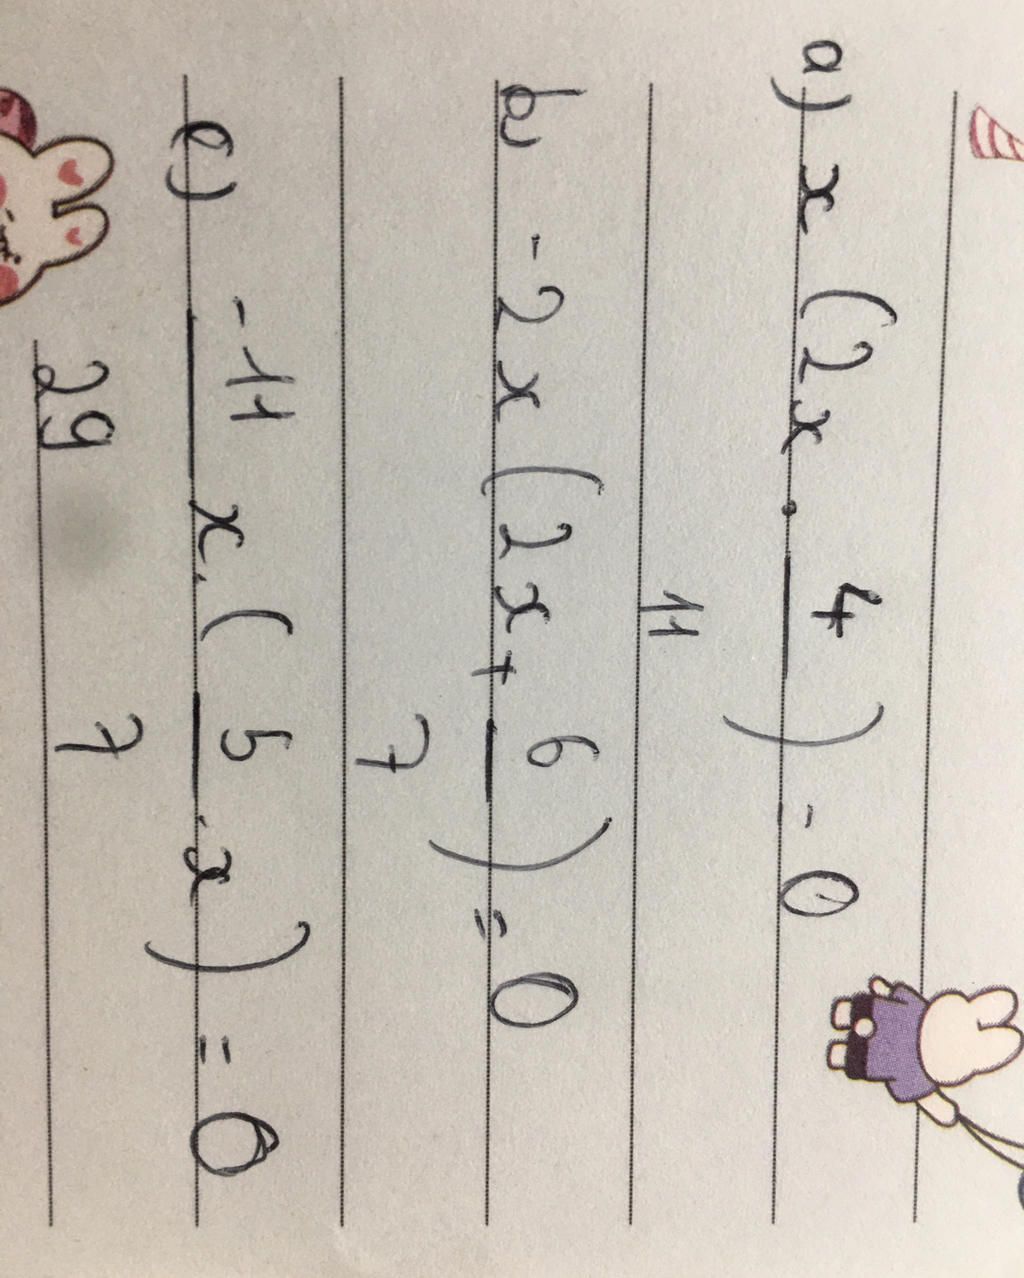 a) x (2x . 4/11) = 0
b) -2x (2x + 6/7) = 0
c) -11/29 x . (5/7 . x) = 0